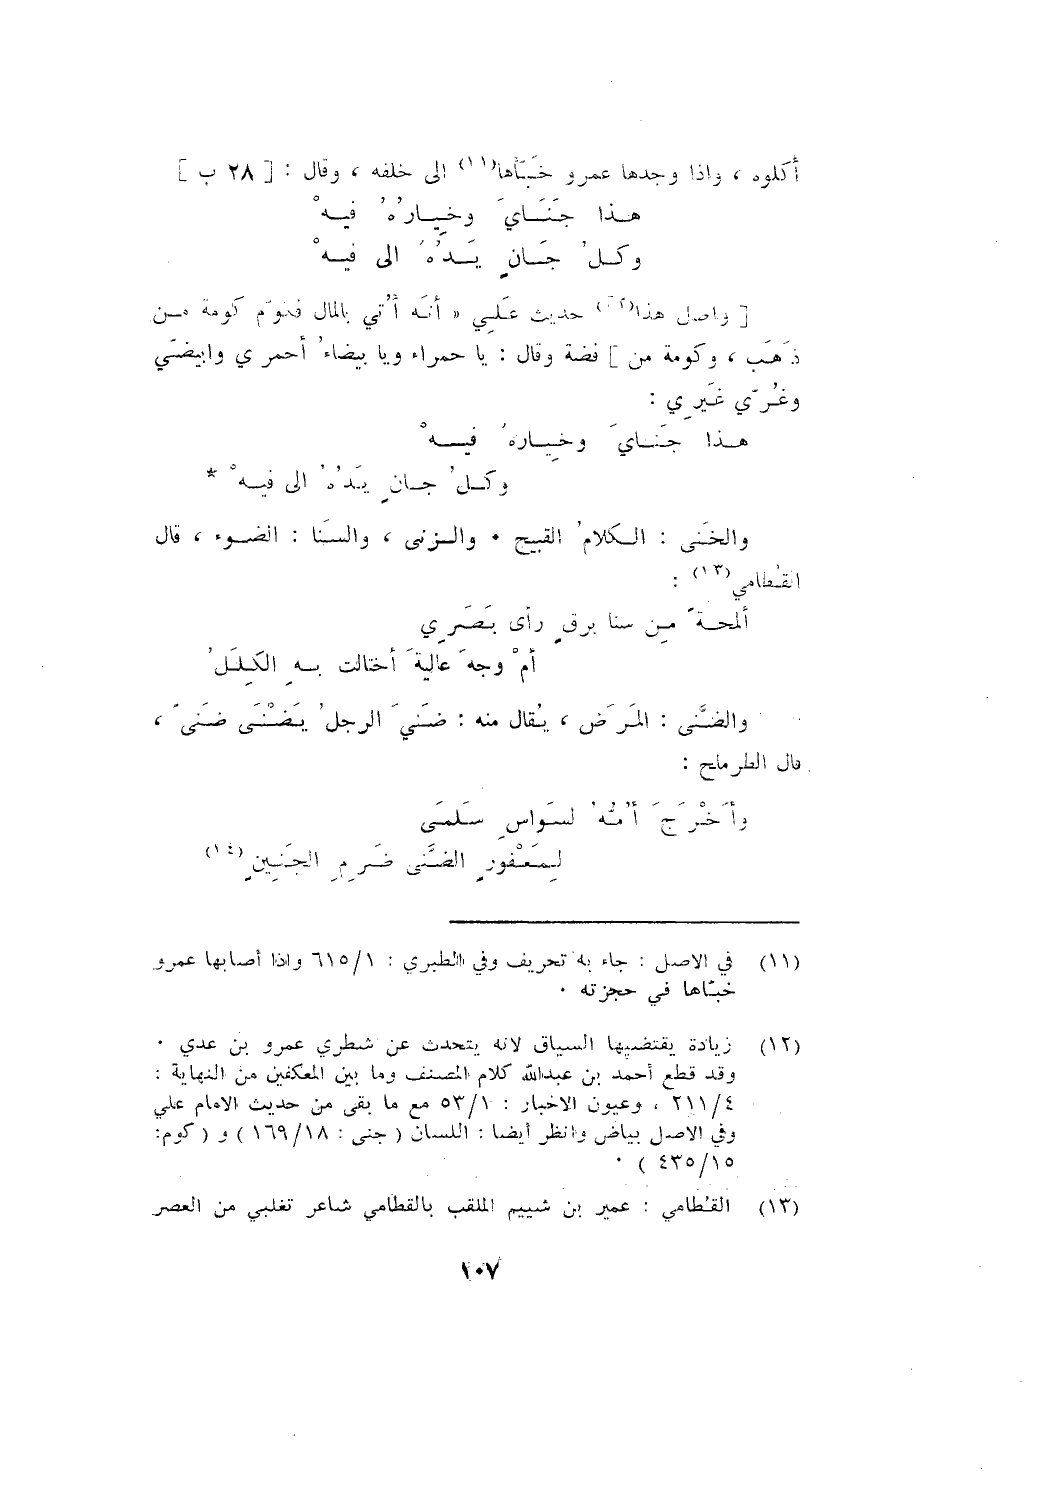 أكلوه ، واذا وجدها عمرو خَبّأها(١١) الى خلفه ، وقال : [ ٢٨ ب ]
هـذا جَنَـايَ وخِيـارُهُ فيـهْ
وكـلُ جَـانٍ يَـدُهُ الى فيـهْ
[ واصل هذا(١٢) حديث عَلَـي « أنّه أُتي بالمال فكوّم كومة مـن
ذَهَب ، وكومة من ] فضة وقال : يا حمراء ويا بيضاءُ أحمري وابيضّي
وغُرّي غَيرِي :
هـذا جَنـايَ وخِيـارهُ فيـهْ
وكـلُ جـانٍ يَدُهُ الى فيـهْ *
والخَنى : الـكلامُ القبيح • والـزنى ، والسَنا : الضـوء ، قال
القُطامي(١٣) :
ألمحـةً مِـن سنا برقٍ رأى بَصَرِي
أمْ وجهَ عاليةَ أختالت بـهِ الكِلَلُ
والضَّنى : المَرَض ، يُقال منه : ضَنيَ الرجلُ يَضْنَى ضَنىً ،
قال الطرماح :
وأَخْرَجَ أُمُّهُ لسَواسِ سَلمَى
لِمَعْفورِ الضَّنى ضَرِمِ الجَنِينِ(١٤)
(١١) في الاصل : جاء به تحريف وفي الطبري : ٦١٥/١ واذا أصابها عمرو
خبّأها في حجزته •
(١٢) زيادة يقتضيها السياق لانه يتحدث عن شطري عمرو بن عدي •
وقد قطع أحمد بن عبدالله كلام المصنف وما بين المعكفين من النهاية :
٢١١/٤ ، وعيون الاخبار : ٥٣/١ مع ما بقى من حديث الامام علي
وفي الاصل بياض وانظر أيضا : اللسان ( جنى : ١٦٩/١٨ ) و ( كوم:
٤٣٥/١٥ ) •
(١٣) القُطامي : عمير بن شييم الملقب بالقطامي شاعر تغلبي من العصر
١٠٧